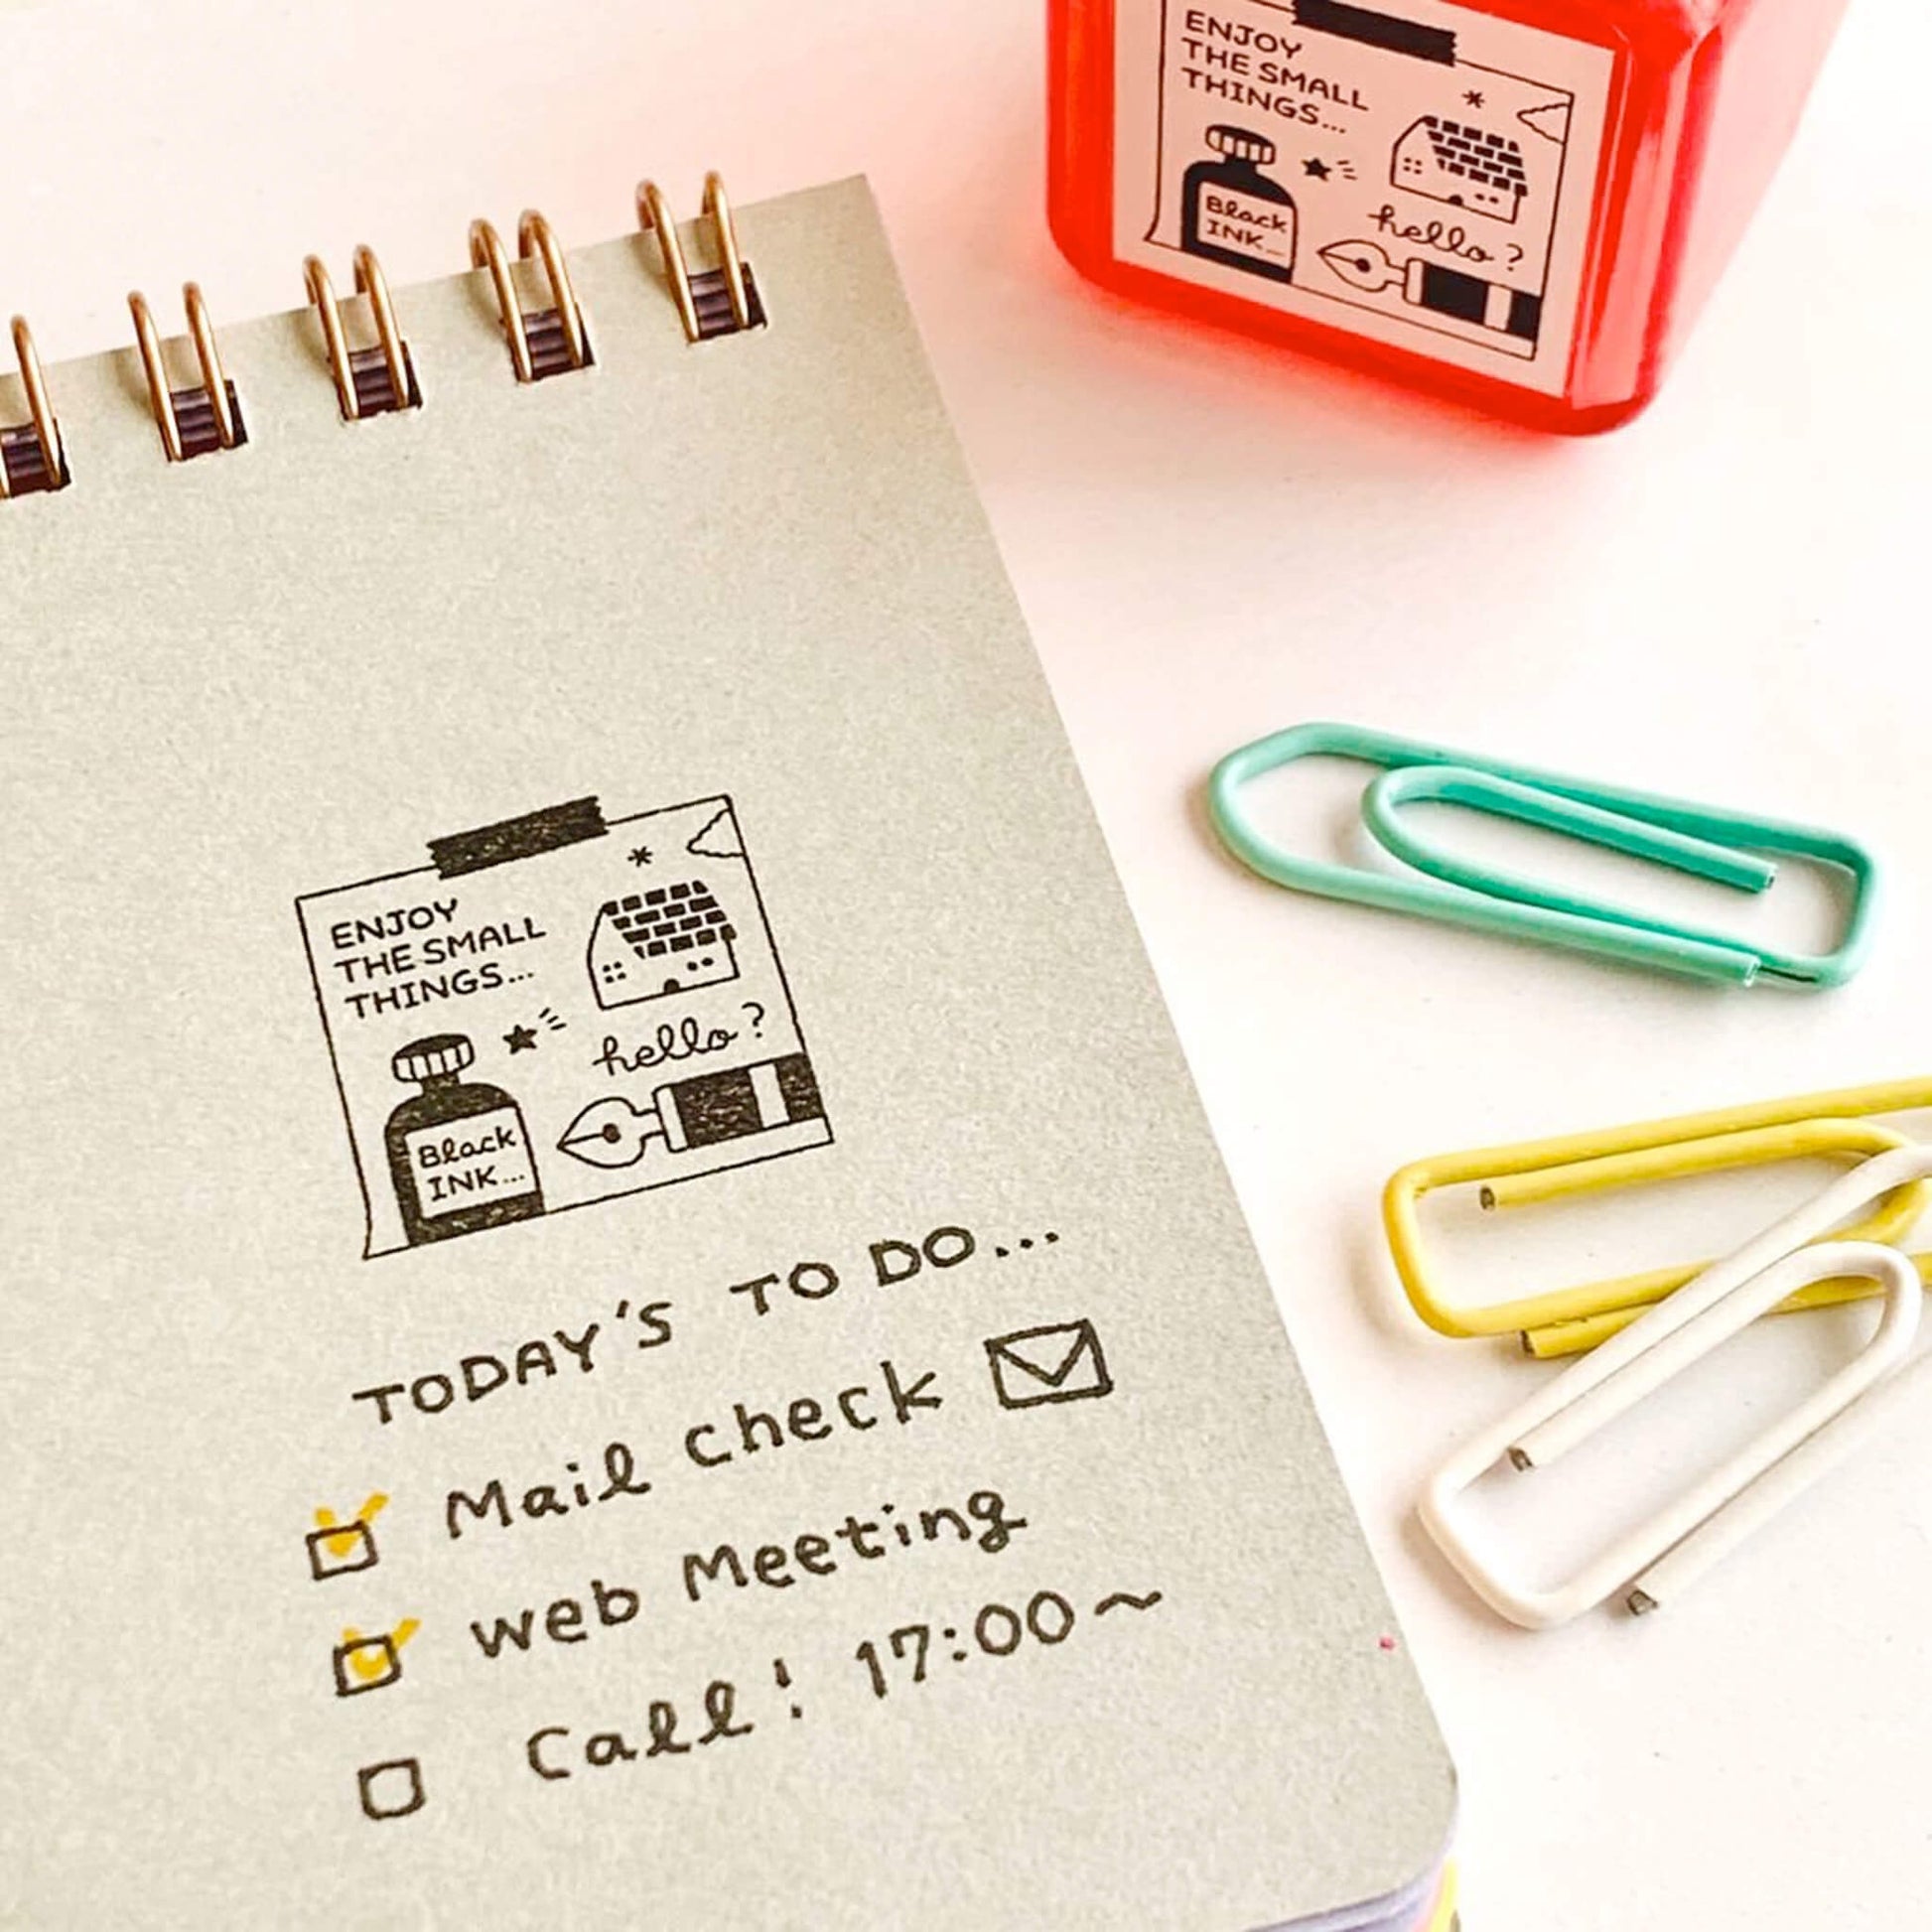 ENJOY
THE SMALL
THINGS...
Black
INK...
hello?
ENJOY
THE SMALL
THINGS...
hello?
Black
INK...
TODAY'S TO DO...
Mail check
web Meeting
Call! 17:00~